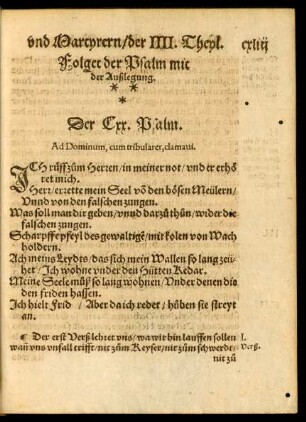 vnd Martyrern/der IIII. Theyl. cxliij
Folget der Psalm mit
der Außlegung.
* *
*
Der Cxx. Psalm.
Ad Dominum, cum tribularer, clamaui.
ICH rüff zům Herren/in meiner not/vnd er erhö
ret mich.
Herr/errette mein Seel võ den bösen Meülern/
Vnnd von den falschen zungen.
Was soll man dir geben/vnud darzů thůn/wider die
falschen zungen.
Scharpffe pfeyl des gewaltigẽ/mit kolen von Wach
holdern.
Ach meins Leydes/das sich mein Wallen so lang zeü
het/Ich wohne vnder den Hütten Kedar.
Meine Seele můß so lang wohnen/Vnder denen die
den friden hassen.
Ich hielt Frid/Aber da ich redet/hůben sie streyt
an.
Der erst Verß lehret vns/wa wir hin lauffen sollen I.
wañ vns vnfall trifft/nit zům Keyser/nit zům schwerde/ Verß.
nit zů